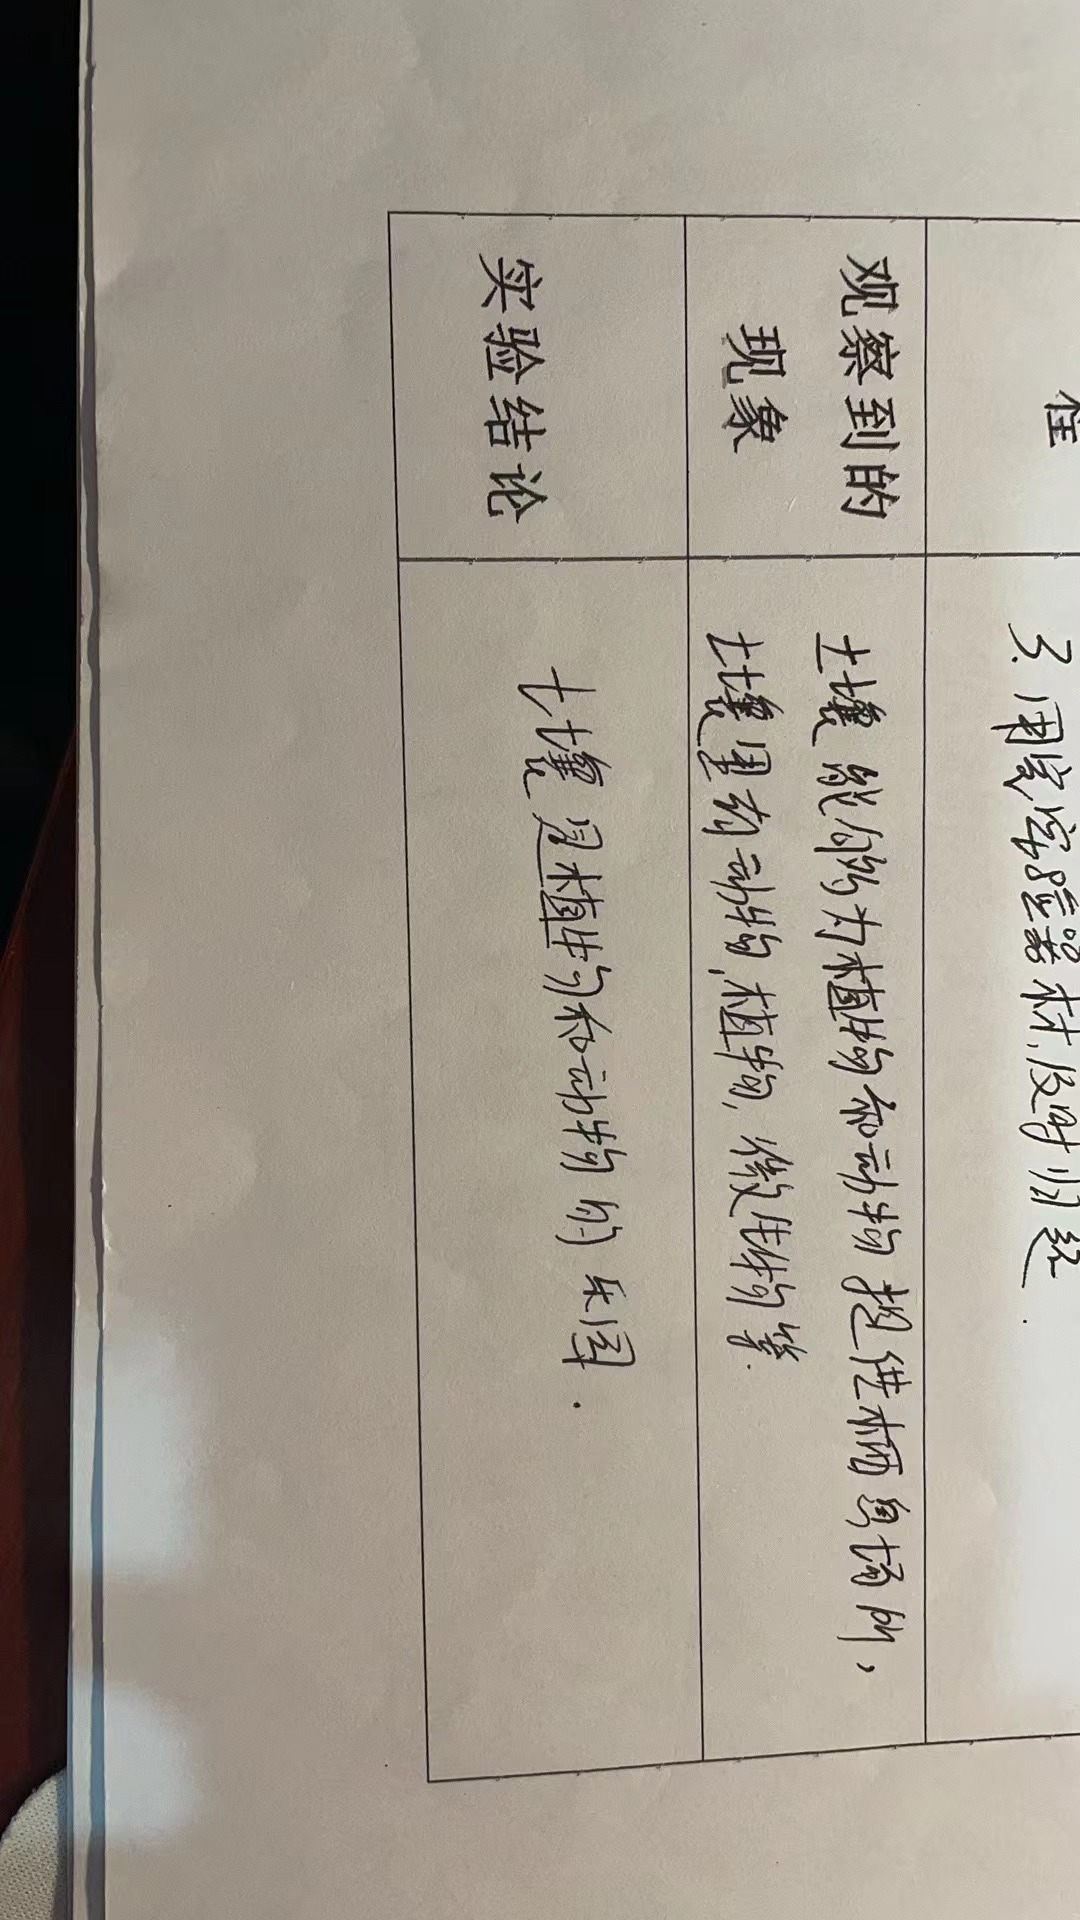 程
3.用完实验器材,及时归还.
观察到的
现象
土壤能够为植物和动物提供栖息场所,
土壤里有动物,植物,微生物等.
实验结论
土壤是植物和动物的乐园.